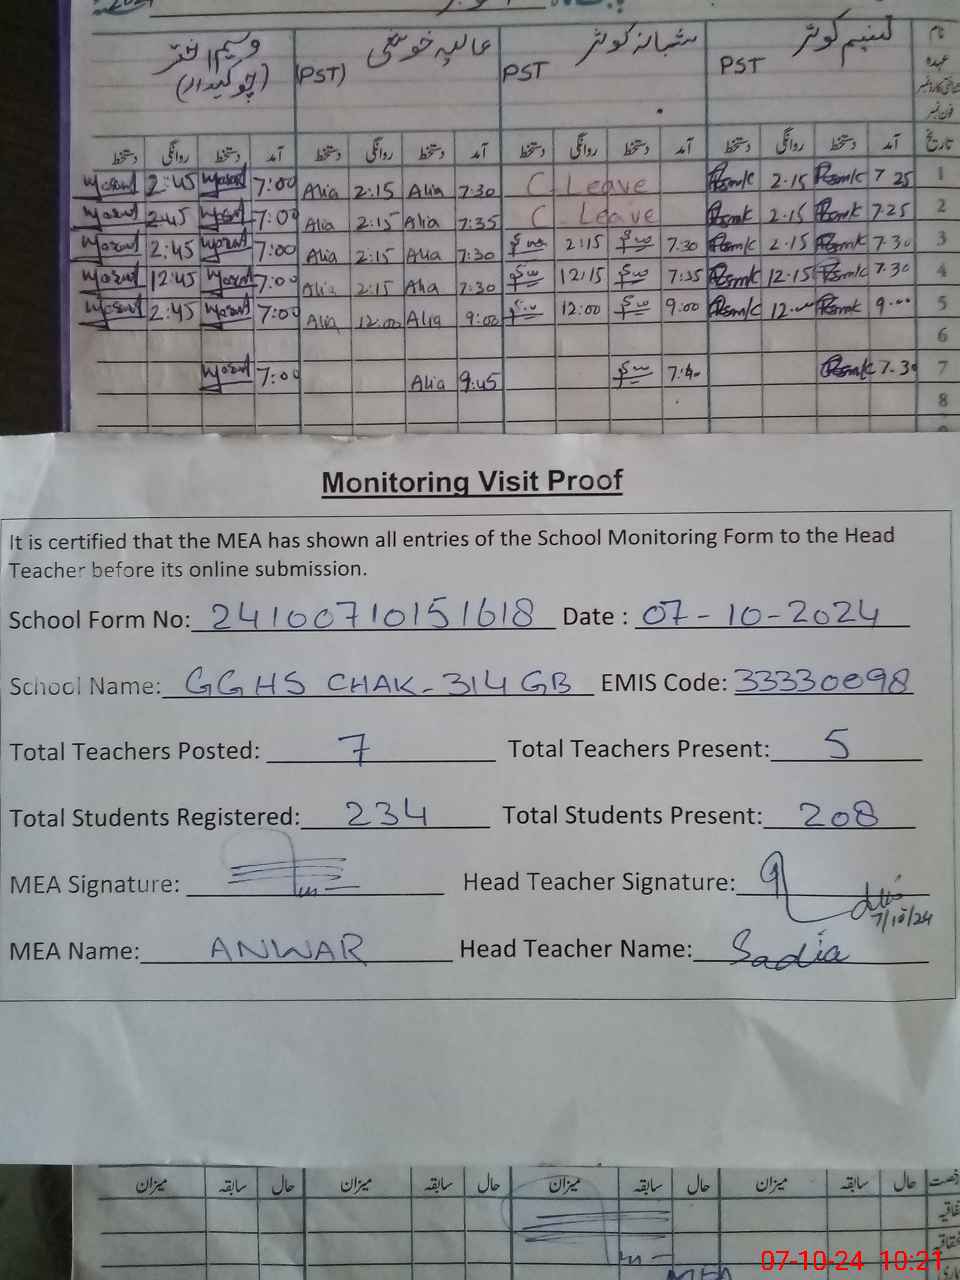 وسیم اختر عالیہ خوشی شبانہ کوثر تسنیم کوثر نام
(چوکیدار) (PST) PST PST عہدہ
فون نمبر
دستخط روانگی دستخط آمد دستخط روانگی دستخط آمد دستخط روانگی دستخط آمد دستخط روانگی دستخط آمد تاریخ
2:45 7:00 Alia 2:15 Alia 7:30 C. Leave 2.15 7 25 1
2:45 7:00 Alia 2:15 Alia 7:35 C Leave 2.15 7.25 2
2:45 7:00 Alia 2:15 Alia 7:30 2:15 7.30 2.15 7.30 3
12:45 7:00 Alia 2:15 Alia 7:30 12:15 7:35 12.15 7.30 4
2:45 7:00 Alia 12:00 Alia 9:00 12:00 9:00 12.00 9.00 5
6
7:00 Alia 9:45 7:40 7.30 7
8
Monitoring Visit Proof
It is certified that the MEA has shown all entries of the School Monitoring Form to the Head
Teacher before its online submission.
School Form No: 24100710151618 Date : 07-10-2024
School Name: GGHS CHAK-314 GB EMIS Code: 33330098
Total Teachers Posted: 7 Total Teachers Present: 5
Total Students Registered: 234 Total Students Present: 208
MEA Signature: Head Teacher Signature:
7/10/24
MEA Name: ANWAR Head Teacher Name: Sadia
میزان سابقہ حال میزان سابقہ حال میزان سابقہ حال میزان سابقہ حال
MEA
07-10-24 10:21